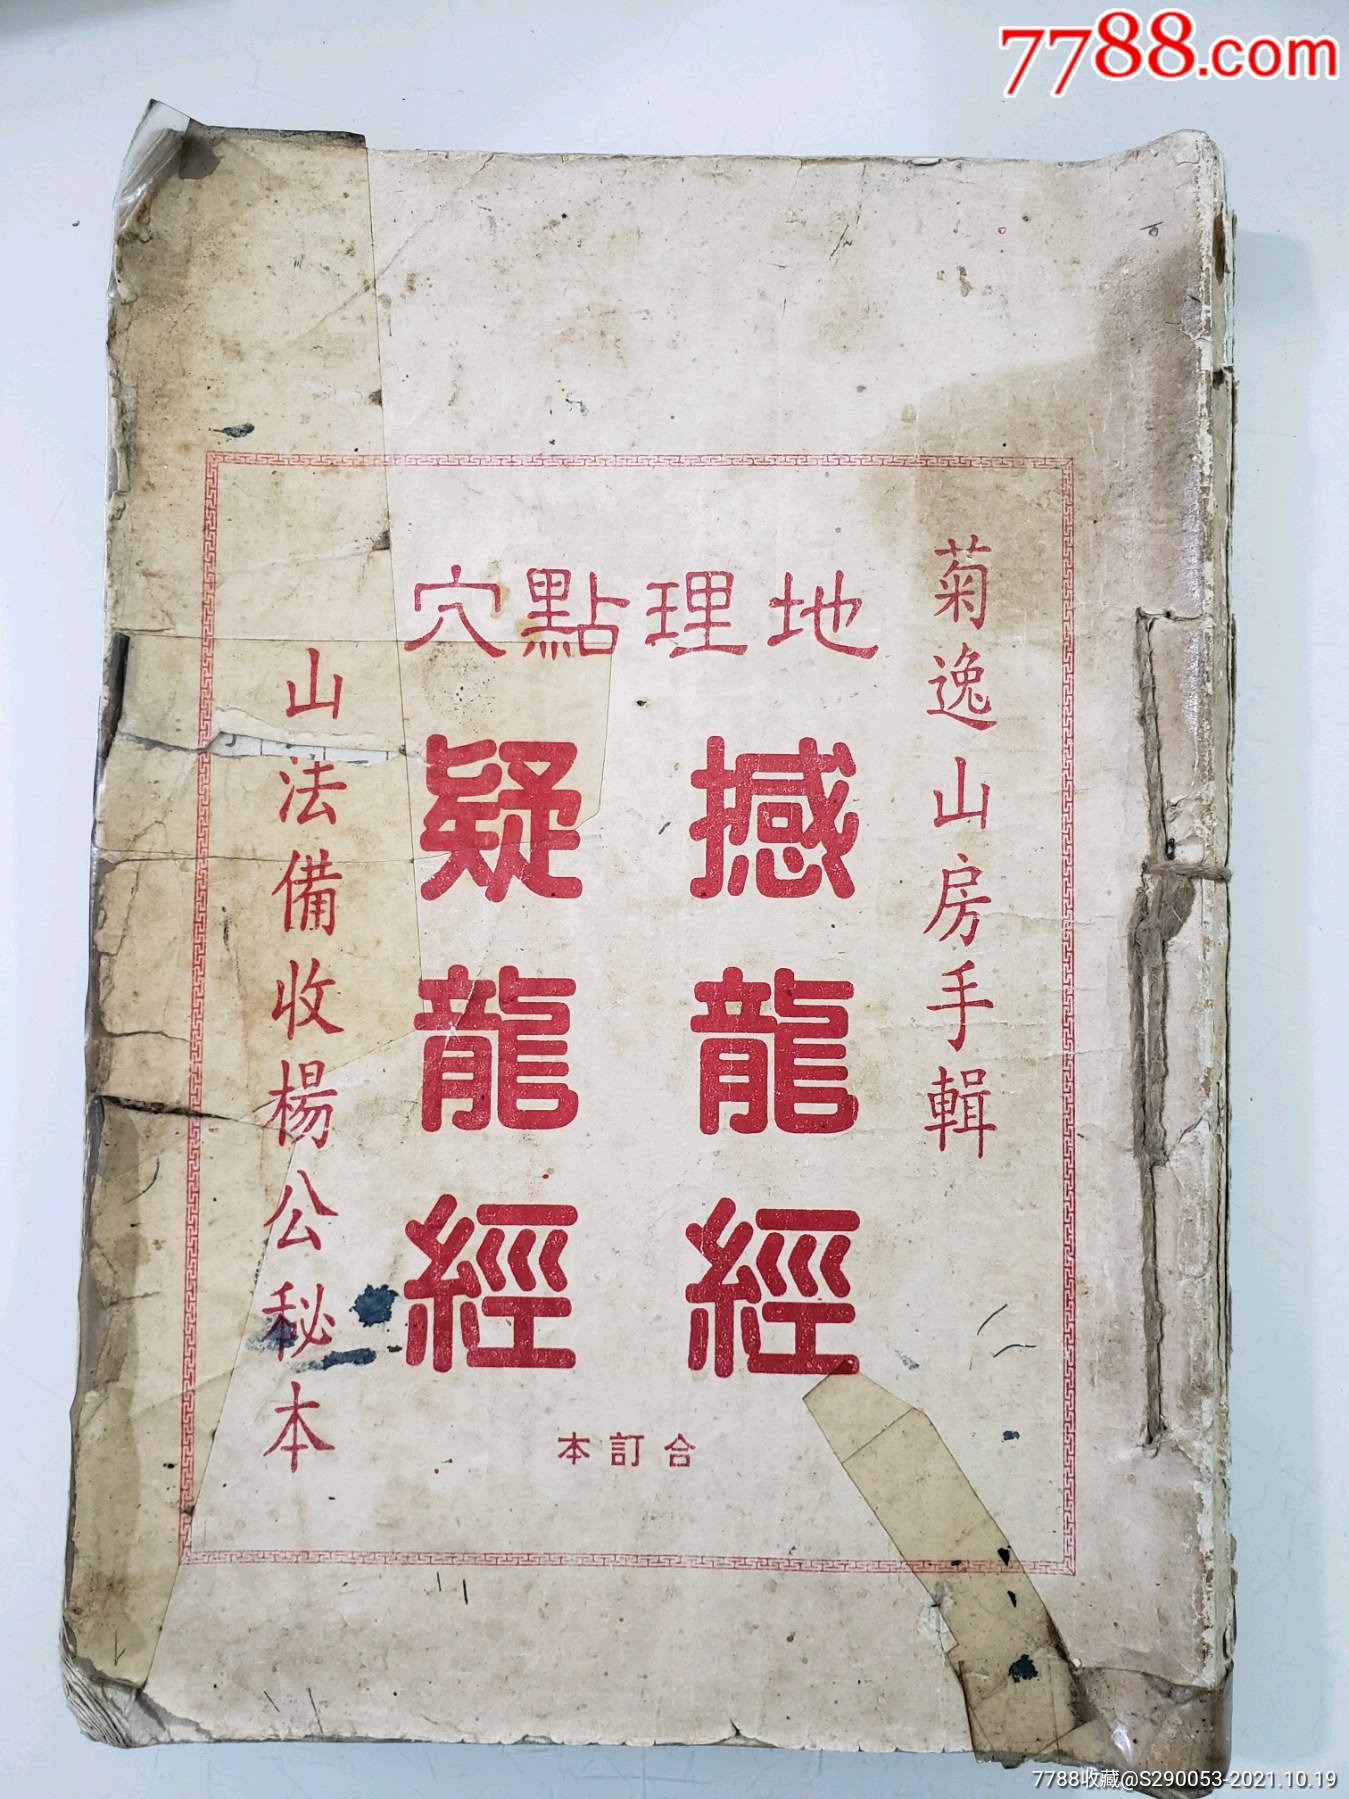 7788.com
菊逸山房手輯
地理點穴
撼龍經
疑龍經
山法備收楊公秘本
合訂本
7788收藏@S290053-2021.10.19